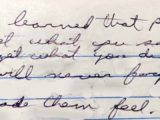 learned that p
t what you sa
get what you d
will never for
ade them feel.